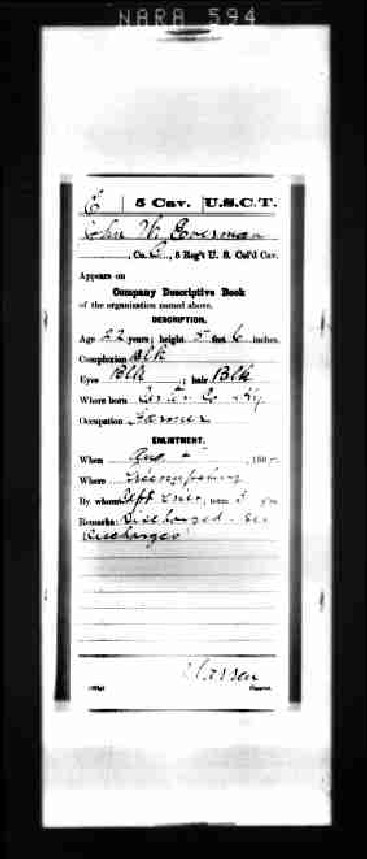 NARA 594
E 5 Cav. U.S.C.T.
John W. Everman
, Co. E, 5 Reg't U. S. Col'd Cav.
Appears on
Company Descriptive Book
of the organization named above.
DESCRIPTION.
Age 22 years; height 5 feet 6 inches.
Complexion Blk
Eyes Blk ; hair Blk
Where born Carter Co Ky
Occupation Farmer
ENLISTMENT.
When Aug , 186
Where
By whom Capt , term 3 y'rs
Remarks: Discharged
Discharges
Copyist.